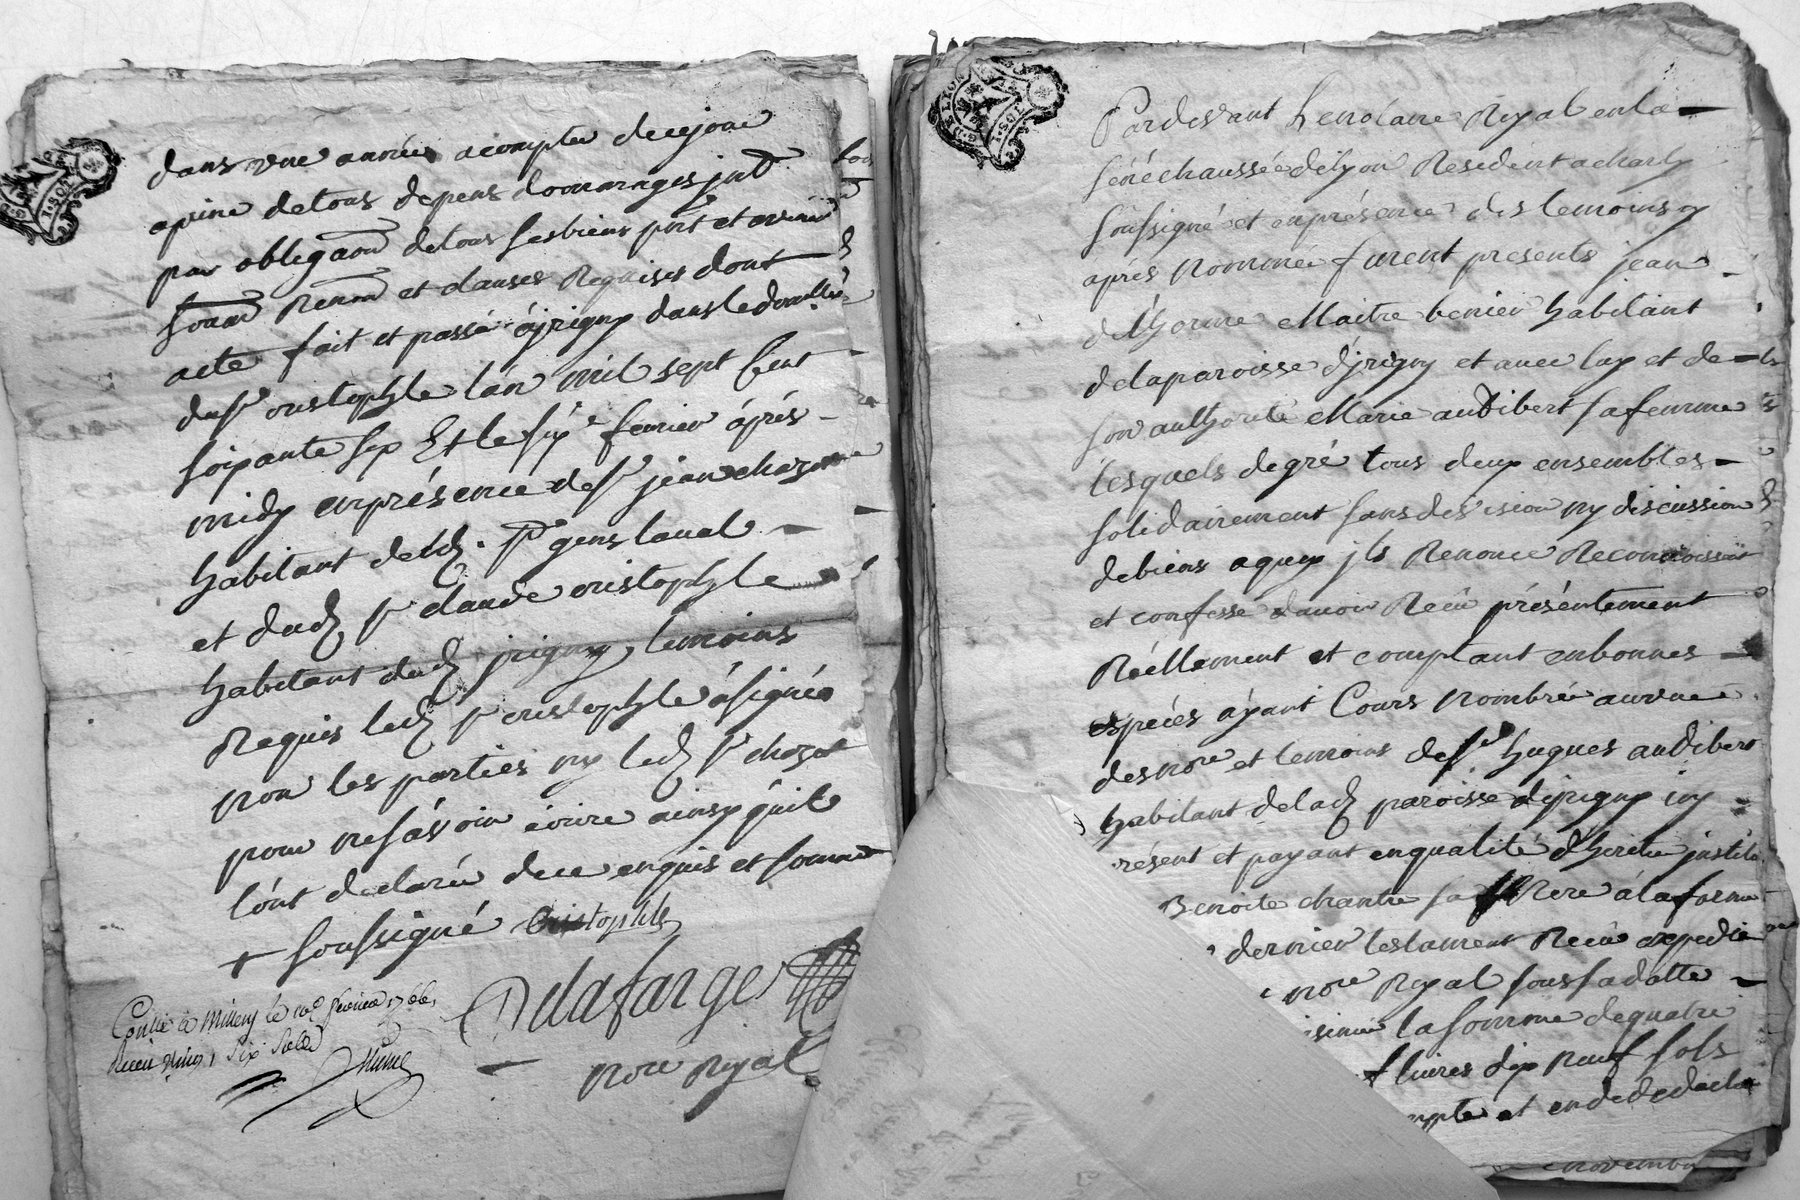 dans une année a compter de ce jour
a peine de tous depens dommages jnt
par obligaon de tous ses biens pnt et avenir
soum Renon et clauses Requises dont
acte fait et passé ajrigny dans le domille
du sr cristophle l'an mil sept Cent
soixante six Et le six fevrier áprés
midy en présence de sr jean chazot
habitant de
et dud sr claude cristophle
habitant dud jrigny temoins
Requis led sr cristophle á signé
non les parties ny led sr chozot
pour ne sávoir écrire ainsy qu'ils
l'ónt declaré de ce enquis et somme
+ soussigné Cristophle
Delafarge
nore Royal
Conllé à Millery le 10e fevrier 1766
Receu six sols
I·SOL
G·DE LYON
I·SOL
Pardevant Le notaire Royal en la
sénéchaussée de Lyon Residént a charly
soussigné et en présence des temoins cy
áprés nommé furent presents jean
delhorme Maitre Benier habitant
de la paroisse d'jrigny et avec luy et de
son authorité Marie audibert sa femme
lesquels de gré tous deux ensembles
solidairement sans devision ny discussion
de biens aquoy jls Renonce Reconnoissent
et confesse davoir Reçu présentement
Réellement et comptant en bonnes
espéces áyant Cours nombré a la vue
des nore et temoins de sr hugues audibert
habitant de lad paroisse d'jrigny icy
présent et payant en qualité d'heritier jnstitu
Benoite chantre sa Mere á la forme
dernier testament Recu expedié
nore Royal sous sa datte
la somme de quatre
livres dix neuf sols
compte et en dedud
novembre